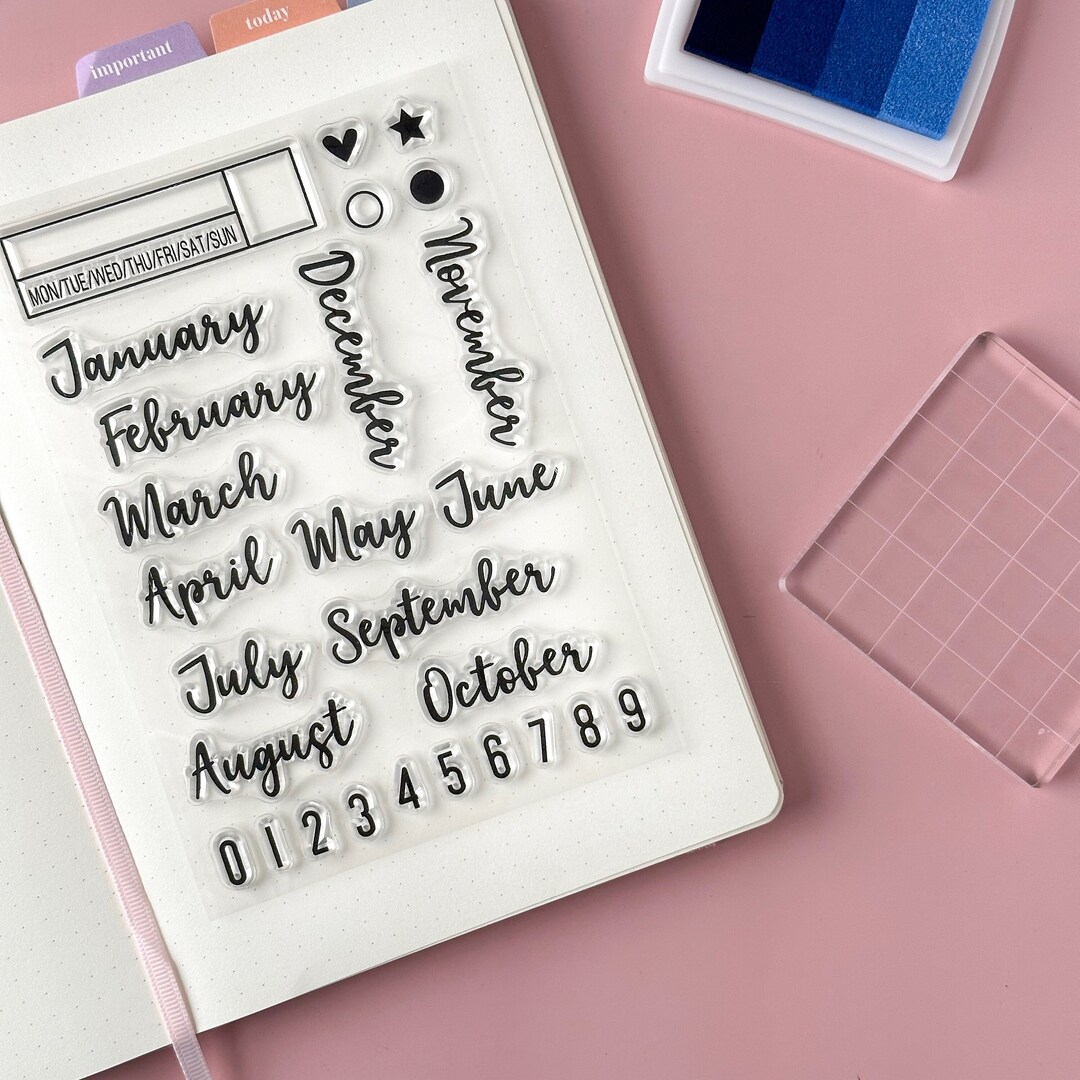 important
today
MON/TUE/WED/THU/FRI/SAT/SUN
January
February
December
November
March
April
May
June
July
September
August
October
0 1 2 3 4 5 6 7 8 9